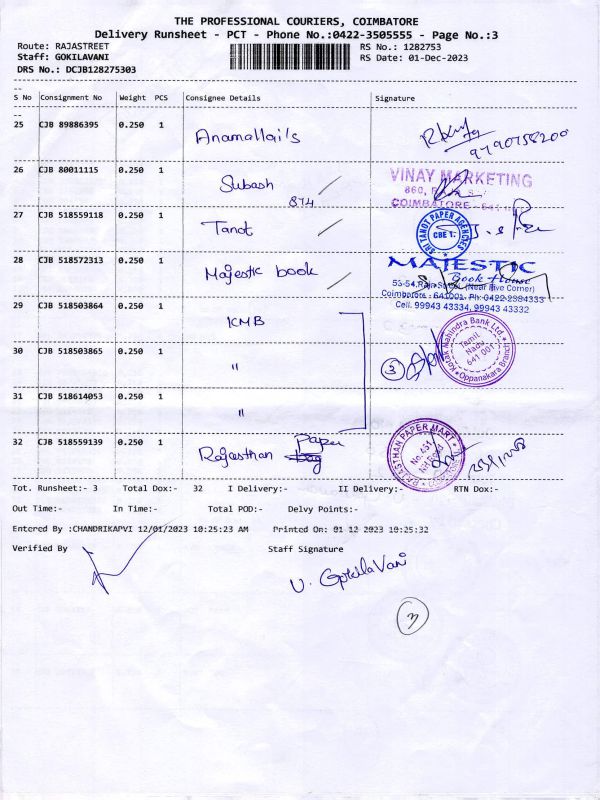 THE PROFESSIONAL COURIERS, COIMBATORE
Delivery Runsheet - PCT - Phone No.:0422-3505555 - Page No.:3
Route: RAJASTREET
RS No.: 1282753
Staff: GOKILAVANI
RS Date: 01-Dec-2023
DRS No.: DCJB128275303
S No Consignment No Weight PCS Consignee Details Signature
25 CJB 89886395 0.250 1 Anamallai's
9790758200
26 CJB 80011115 0.250 1 Subash
874
VINAY MARKETING
COIMBATORE
27 CJB 518559118 0.250 1 Tanot
SRI TANOT PAPER AGENCIES
CBE 1.
28 CJB 518572313 0.250 1 Majestic book
MAJESTIC
Book House
53-54, Raja Street, (Near Five Corner)
Coimbatore - 641001. Ph: 0422-2384333
Cell. 99943 43334, 99943 43332
29 CJB 518503864 0.250 1 KMB
30 CJB 518503865 0.250 1 "
3
Kotak Mahindra Bank Ltd.
Tamil
Nadu
641 001
Oppanakara Branch
31 CJB 518614053 0.250 1 "
32 CJB 518559139 0.250 1 Rajasthan Paper
bag
RAJASTHAN PAPER MART
Tot. Runsheet:- 3 Total Dox:- 32 I Delivery:- II Delivery:- RTN Dox:-
Out Time:- In Time:- Total POD:- Delvy Points:-
Entered By :CHANDRIKAPVI 12/01/2023 10:25:23 AM Printed On: 01-12-2023 10:25:32
Verified By Staff Signature
V. GokilaVani
3